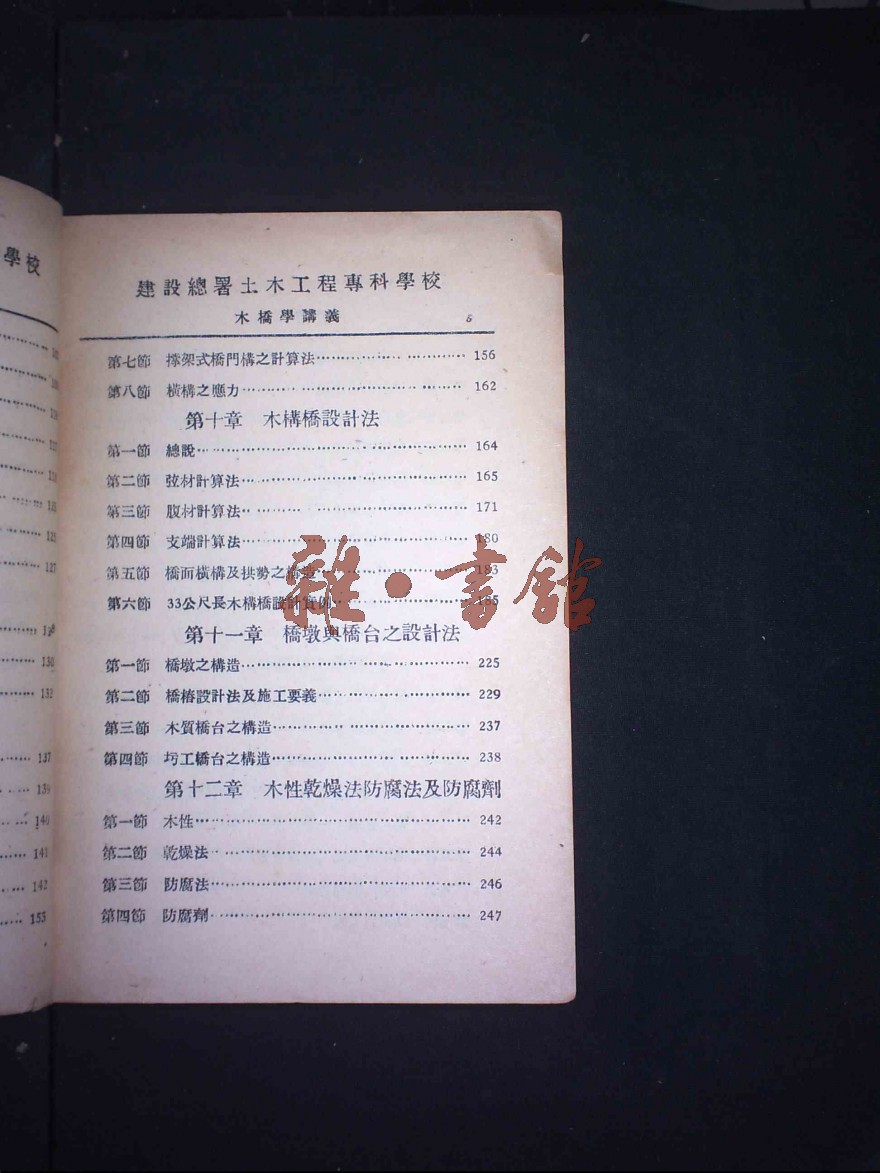 學校
137
139
140
141
142
153
建設總署土木工程專科學校
木橋學講義 5
第七節 撑架式橋門構之計算法 156
第八節 橫構之應力 162
第十章 木構橋設計法
第一節 總說 164
第二節 弦材計算法 165
第三節 腹材計算法 171
第四節 支端計算法 180
第五節 橋面橫構及拱勢之構造 183
第六節 33公尺長木構橋設計實例
第十一章 橋墩與橋台之設計法
第一節 橋墩之構造 225
第二節 橋樁設計法及施工要義 229
第三節 木質橋台之構造 237
第四節 圬工橋台之構造 238
第十二章 木性乾燥法防腐法及防腐劑
第一節 木性 242
第二節 乾燥法 244
第三節 防腐法 246
第四節 防腐劑 247
雜·書館